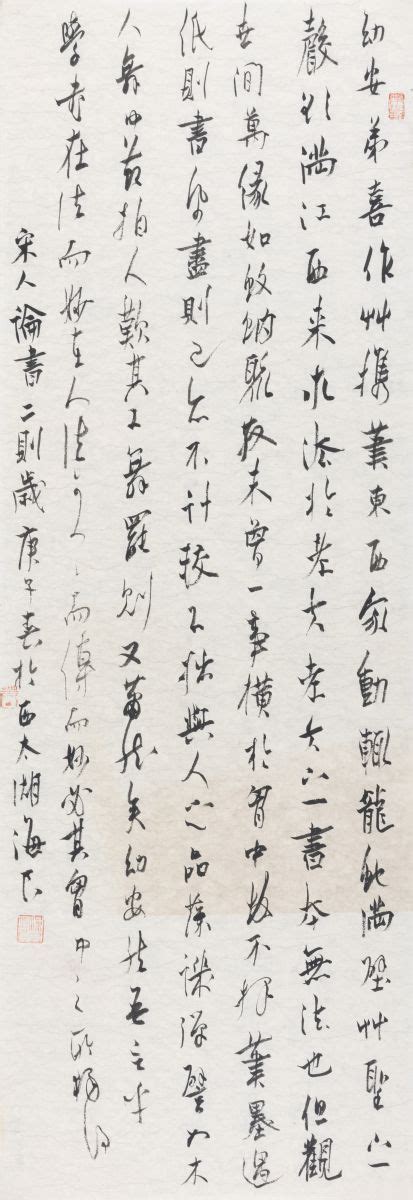 幼安弟喜作艸攜筆東西家動輒龍蛇滿壁艸聖之
聲欲滿江西來求法於老夫老夫之書本無法也但觀
世間萬緣如蚊蚋聚散未曾一事橫於胷中故不擇筆墨遇
紙則書紙盡則已亦不計較工拙與人之品藻譏彈譬如木
人舞中節拍人歎其工舞罷則又蕭然矣幼安然吾言乎
學書在法而妙在人法可以人人而傳而妙必其胷中之所獨得
宋人論書二則歲庚子春於西太湖海